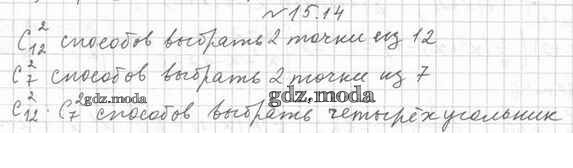 №15.14
C²₁₂ способов выбрать 2 точки из 12
C²₇ способов выбрать 2 точки из 7
C²₁₂ · C²₇ способов выбрать четырёхугольник
gdz.moda
gdz.moda